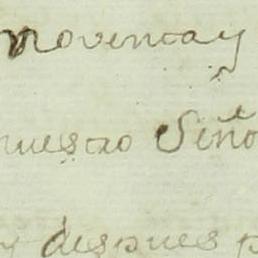 noventa y
nuestro Seño
y despues p